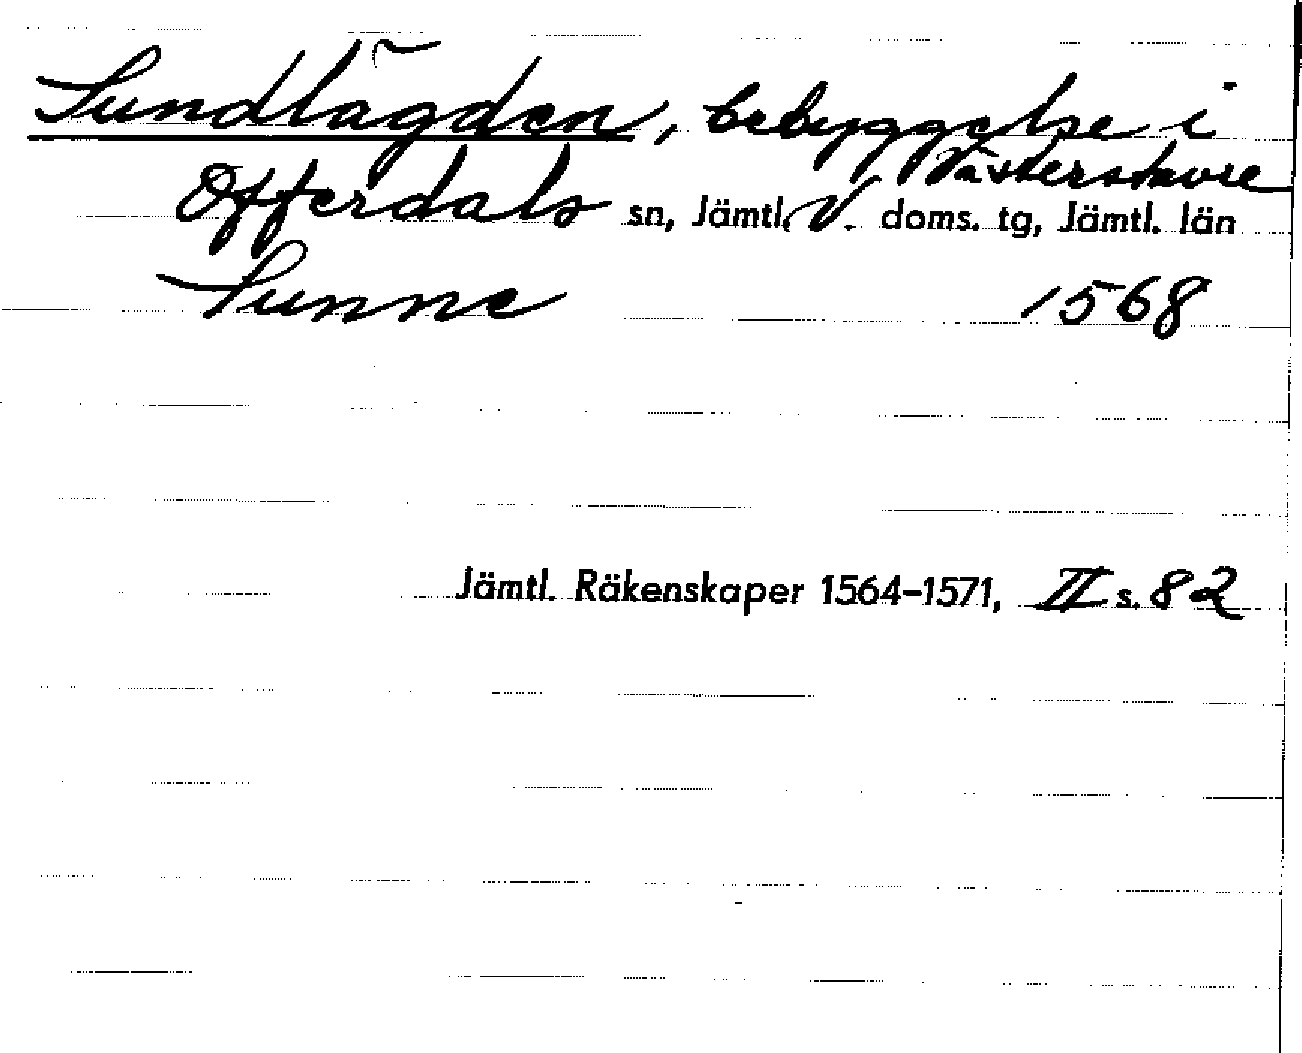 Sundlägden, bebyggelse i
Västerstavre
Offerdals sn, Jämtl. V. doms. tg, Jämtl. län
Sunne 1568
Jämtl. Räkenskaper 1564-1571, II s. 82